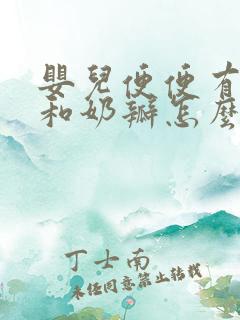 嬰兒便便有
和奶瓣怎麼
丁士南
未经同意禁止转载